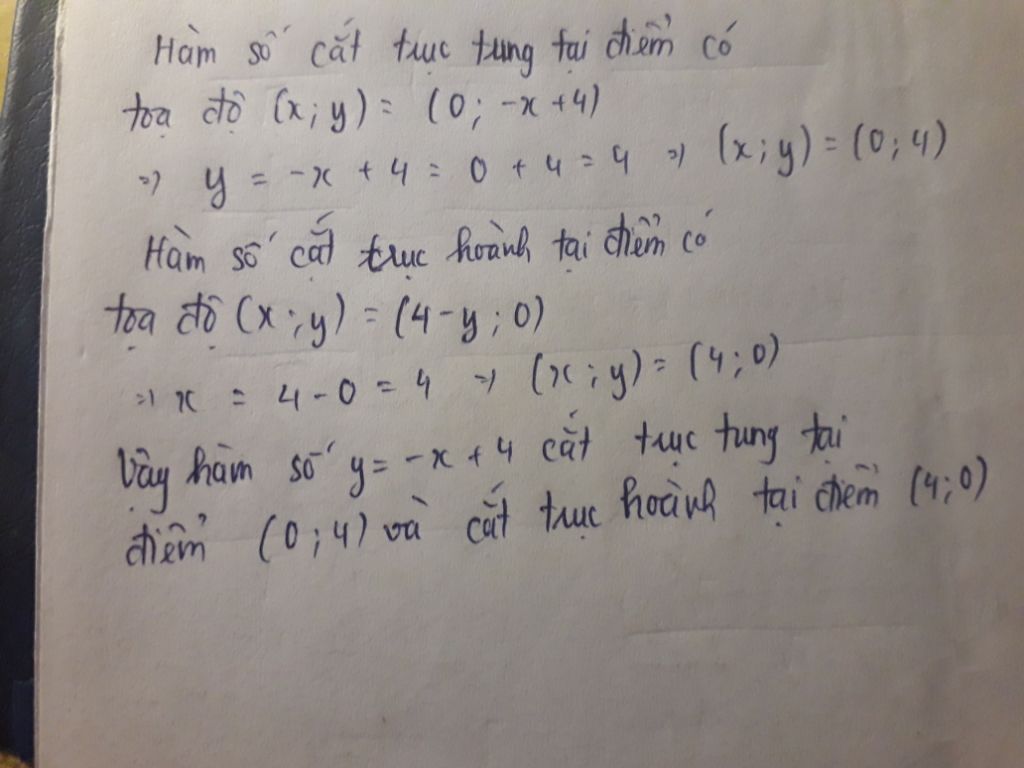 Hàm số cắt trục tung tại điểm có
tọa độ (x; y) = (0; -x + 4)
=> y = -x + 4 = 0 + 4 = 4 => (x; y) = (0; 4)
Hàm số cắt trục hoành tại điểm có
tọa độ (x; y) = (4 - y; 0)
=> x = 4 - 0 = 4 => (x; y) = (4; 0)
Vậy hàm số y = -x + 4 cắt trục tung tại
điểm (0; 4) và cắt trục hoành tại điểm (4; 0)